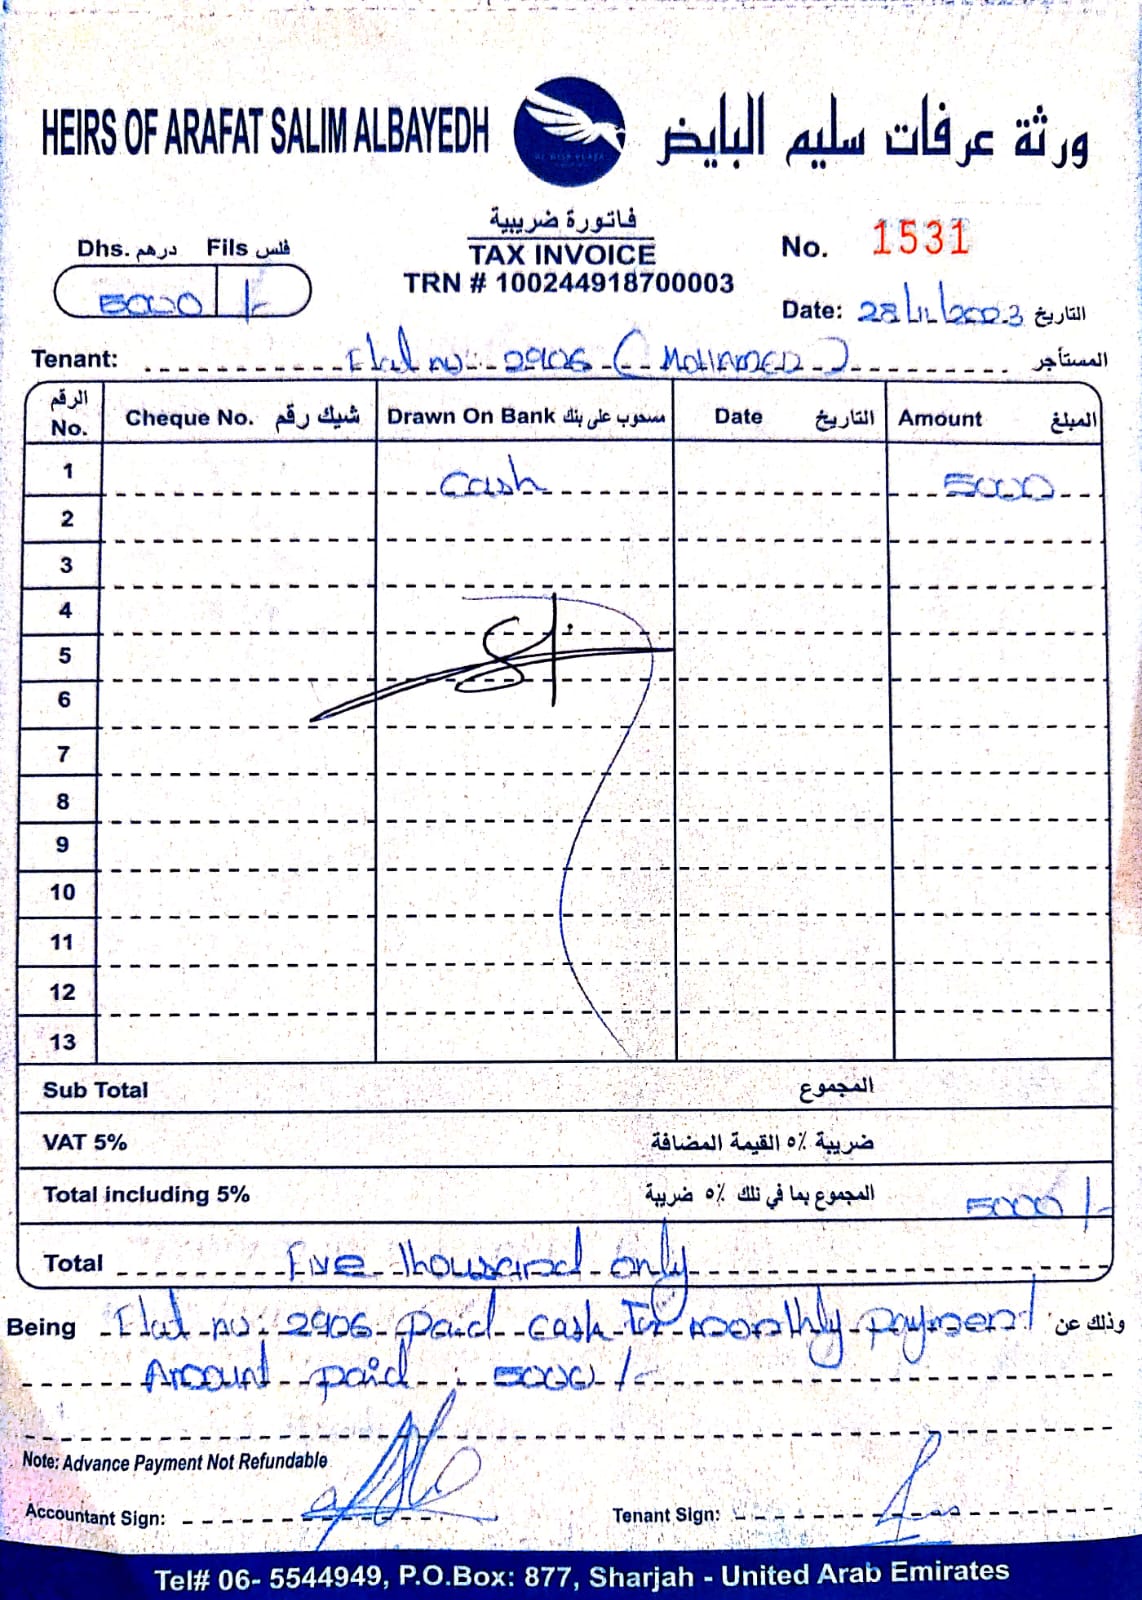 HEIRS OF ARAFAT SALIM ALBAYEDH ورثة عرفات سليم البايض
فاتورة ضريبية
TAX INVOICE
TRN # 100244918700003
Dhs. درهم Fils فلس
5000 /-
No. 1531
Date: 28/11/2023 التاريخ
Tenant: Flat no: 2906 (MOHAMED) المستأجر
الرقم No. Cheque No. شيك رقم Drawn On Bank مسحوب على بنك Date التاريخ Amount المبلغ
1 Cash 5000
2
3
4
5
6
7
8
9
10
11
12
13
Sub Total المجموع
VAT 5% ضريبة ٥٪ القيمة المضافة
Total including 5% المجموع بما في تلك ٥٪ ضريبة 5000/-
Total Five thousand only
Being Flat no: 2906 paid cash For monthly payment وذلك عن
Amount paid : 5000/-
Note: Advance Payment Not Refundable
Accountant Sign: Tenant Sign:
Tel# 06- 5544949, P.O.Box: 877, Sharjah - United Arab Emirates